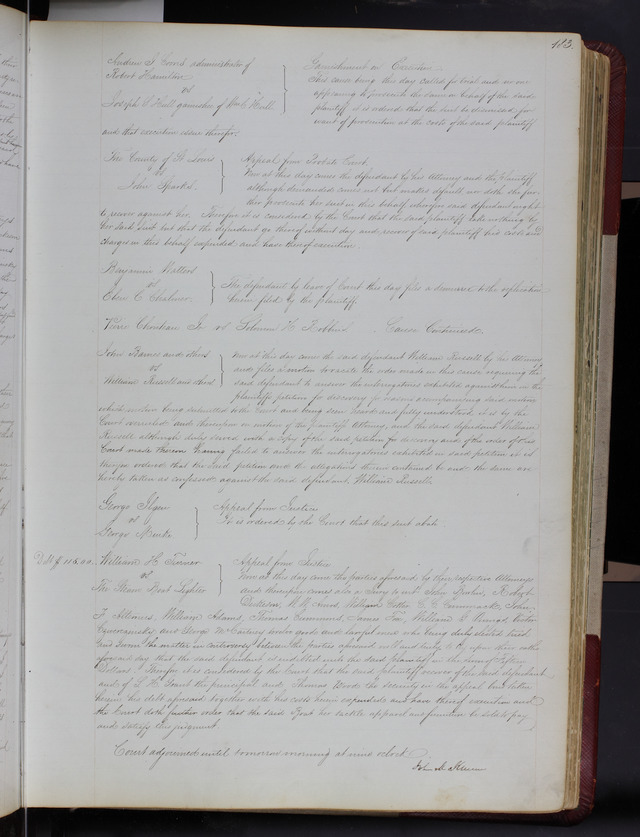 413.
Andrew J. administrator of
Robert Hamilton
vs
Joseph C Hull garnishee of Wm C Hull
Garnishment on Execution
This cause being this day called for trial and no one
appearing to prosecute the same in behalf of the said
plaintiff it is ordered that the suit be dismissed for
want of prosecution at the costs of the said plaintiff
and that execution issue therefor.
The County of St Louis
vs
John Sparks.
Appeal from Probate Court.
Now at this day comes the defendant by his Attorney and the plaintiff
although demanded comes not but makes default nor doth she further
prosecute her suit in this behalf whereby said defendant ought
to recover against her. Therefore it is considered by the Court that the said plaintiff take nothing by
her said suit but that the defendant go thereof without day and recover of said plaintiff his costs and
charges in this behalf expended and have thereof execution.
Benjamin
vs
Eben C.
The defendant by leave of Court this day files a demurrer to the replication
herein filed by the plaintiff.
Pierre Chouteau Jr vs H Robbins. Cause Continued.
John Barnes and others
vs
William Russell and others
Now at this day came the said defendant William Russell by his Attorney
and files a motion to vacate the order made in this cause requiring the
said defendant to answer the interrogatories exhibited against him in the
plaintiffs petition for discovery for reasons accompanying said motion
which motion being submitted to the Court and being seen heard and fully understood it is by the
Court overruled and thereupon on motion of the plaintiffs Attorney, and the said defendant William
Russell although duly served with a copy of the said petition for discovery and of the order of this
Court made thereon having failed to answer the interrogatories exhibited in said petition it is
therefore ordered that the said petition and the allegations therein contained be and the same are
hereby taken as confessed against the said defendant William Russell.
George Ilgen
vs
George
Appeal from Justice
It is ordered by the Court that this suit abate
William H. Turner
vs
The Steam Boat Lightner
Appeal from Justice
Now at this day come the parties aforesaid by their respective Attorneys
and thereupon comes also a Jury to wit John
John
F William Adams, Thomas James William
and George McCartney twelve good and lawful men who being duly elected tried
and sworn the matter in controversy between the parties aforesaid well and truly to try upon their oaths
aforesaid say that the said defendant is indebted unto the said plaintiff in the sum of
Dollars. Therefore it is considered by the Court that the said plaintiff recover of the said defendant
and of the principal and Thomas Wood the security in the appeal bond taken
herein his debt aforesaid together with his costs herein expended and have thereof execution and
the Court doth further order that the said Boat her tackle apparel and furniture be sold to pay
and satisfy this judgment
Court adjourned until tomorrow morning at nine oclock.
John M. Krum